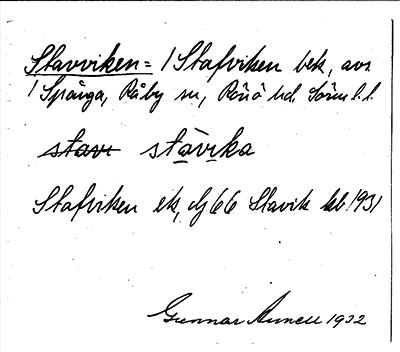 Stavviken = / Stafviken bek, avs
/ Spånga, Råby sn, Rönö hd. Södm l.l.
stavi stàvika
Stafviken ek, dj 66 Slavik kb 1931
Gunnar 1932